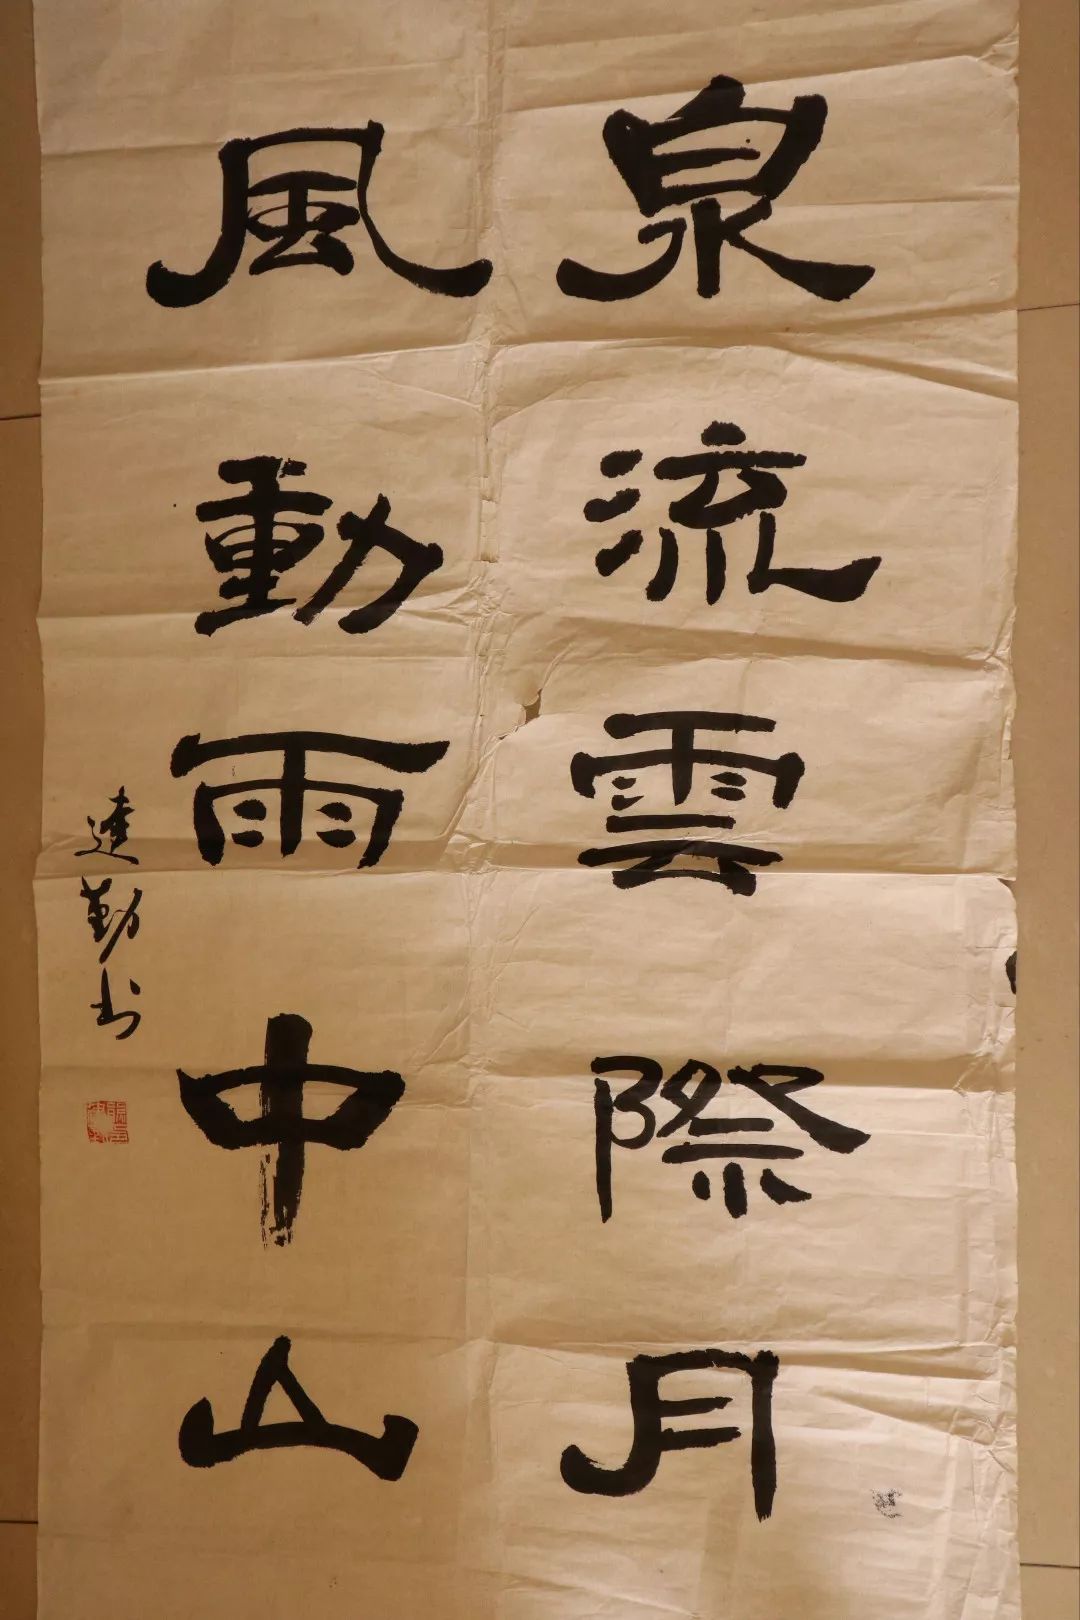 泉流雲際月
風動雨中山
達勤书